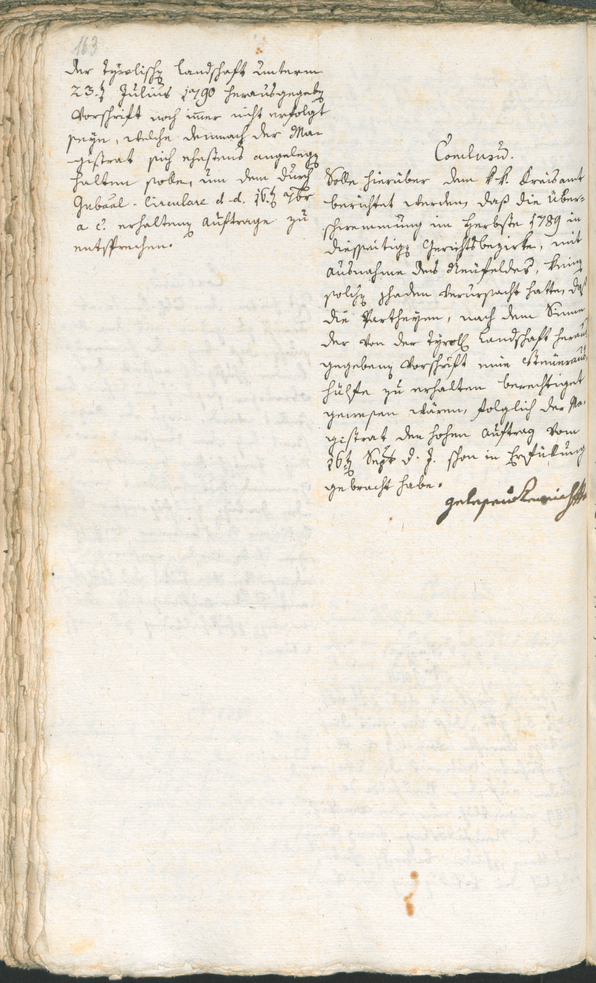 163
der Tyrolisch Landschaft unterm
23.t Julius 1790 herausgegeben
Vorschrift noch immer nicht erfolgt
seyn, welche demnach der Ma-
gistrat sich ehestens angelegen
halten solle, um dem durch
Gubernal-Circulare d.d. 16.t 7br
a. c. erhaltenen Auftrage zu
entsprechen.
Conclusum.
Solle hierüber dem k.k. Kreisamt
berichtet werden, daß die Über-
schwemmung im Herbste 1789 in
diesseitigen Gerichtsbezirke, mit
Ausnahme des Neufeldes, keinen
solchen Schaden verursacht hatte, daß
die Partheyen, nach dem Sinne
der von der Tyroll Landschaft heraus
gegebenen Vorschrift eine Steueraus
hülfe zu erhalten berechtiget
gewesen wären, folglich der Ma-
gistrat den hohen Auftrag vom
16.t Sept d. J. schon in Erfüllung
gebracht habe.